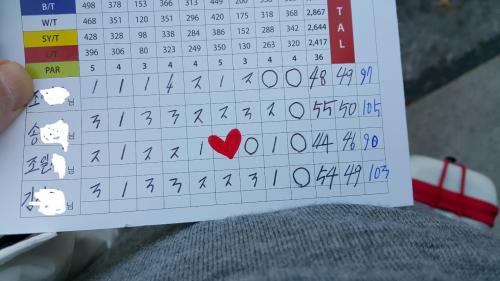 B/T 498 378 153 366 313 449
W/T 468 351 120 351 296 420 175 318 368 2,867
SY/T 428 328 98 338 284 386 152 288 342 2,644
L/T 396 306 80 323 249 350 130 263 320 2,417
PAR 5 4 3 4 4 5 3 4 4 36
T
A
L
조 님 1 1 1 4 2 1 2 0 0 48 49 97
송 님 3 1 3 3 2 2 3 2 0 55 50 105
조 님 2 1 2 2 1 0 1 0 44 46 90
김 님 3 1 3 3 2 2 3 1 0 54 49 103